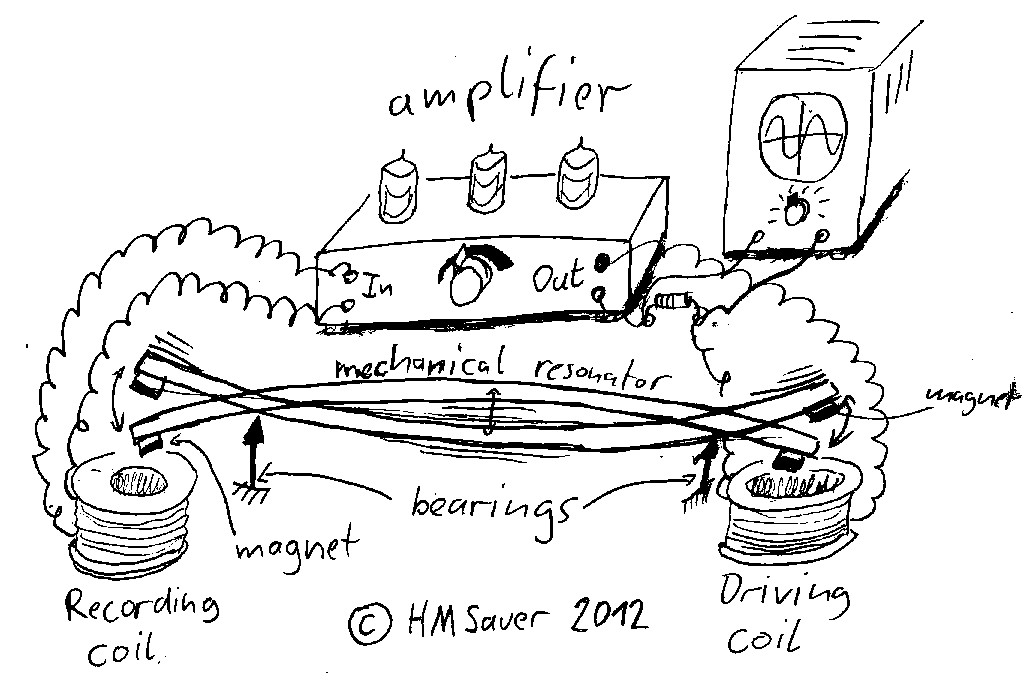 amplifier
In
Out
mechanical resonator
magnet
bearings
magnet
Recording
coil.
Driving
coil
© HMSauer 2012